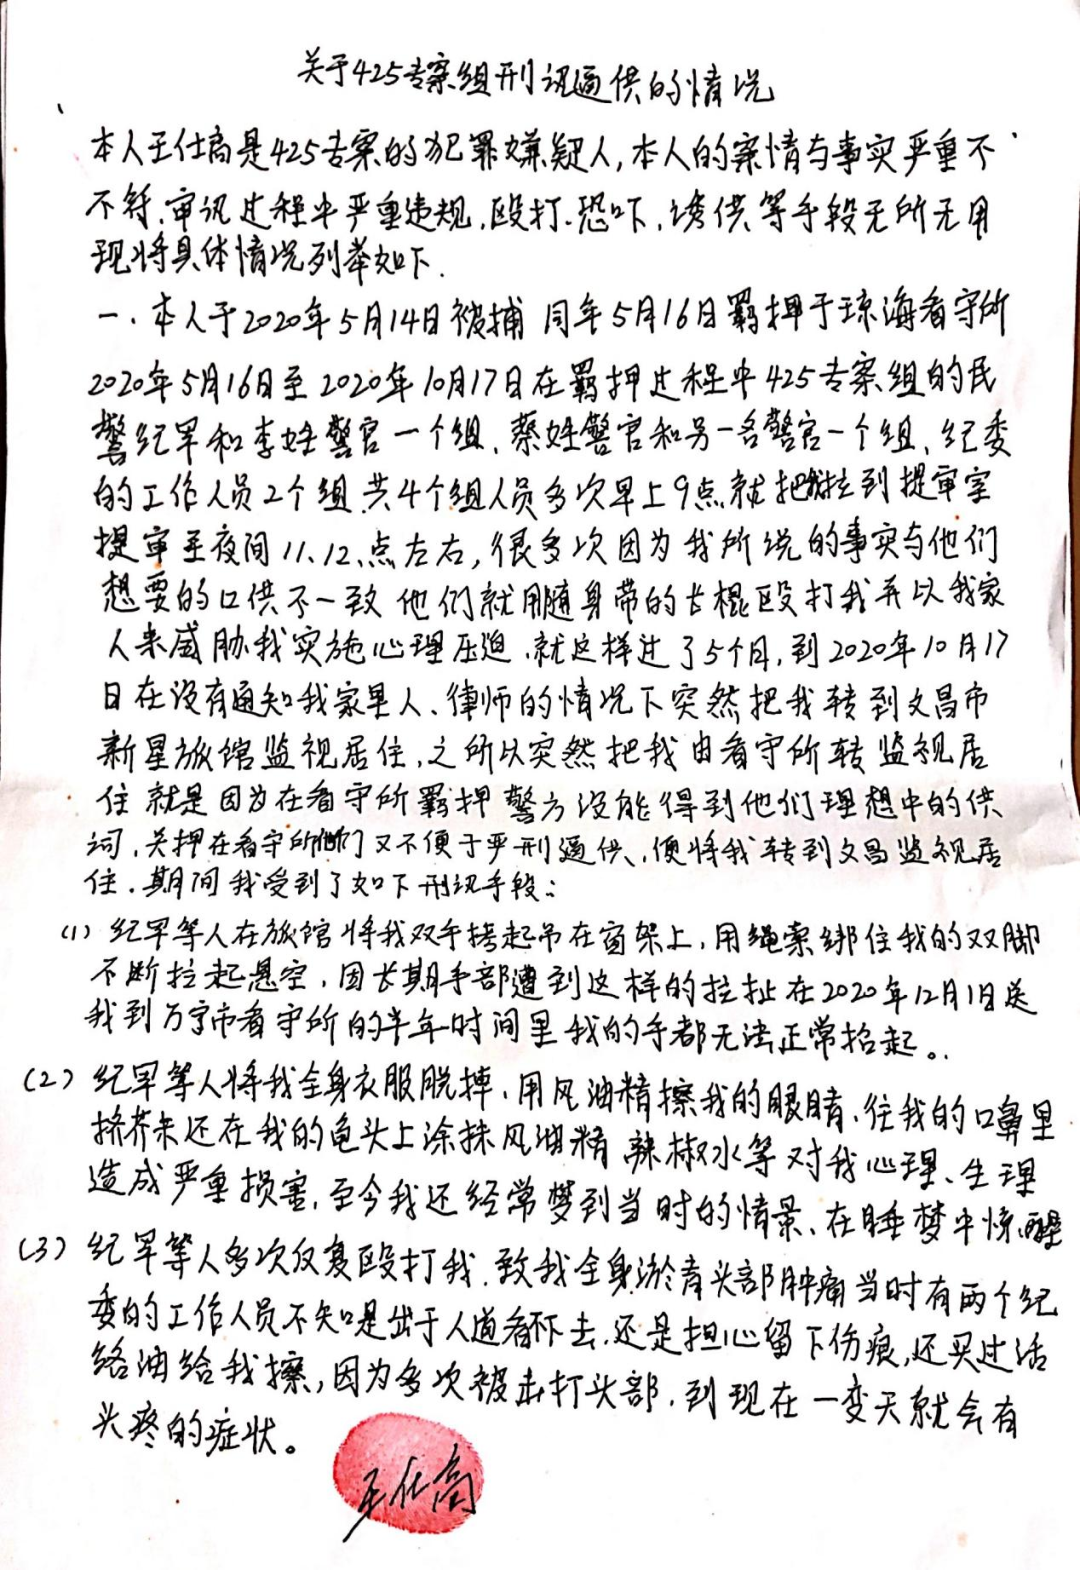 关于425专案组刑讯逼供的情况
本人王仕高是425专案的犯罪嫌疑人,本人的案情与事实严重不
不符.审讯过程中严重违规,殴打.恐吓,诱供等手段无所无用
现将具体情况列举如下.
一、本人于2020年5月14日被捕 同年5月16日羁押于琼海看守所
2020年5月16日至2020年10月17日在羁押过程中425专案组的民
警纪罕和李姓警官一个组、蔡姓警官和另一名警官一个组、纪委
的工作人员2个组 共4个组人员多次早上9点就把我拉到提审室
提审至夜间11、12、点左右,很多次因为我所说的事实与他们
想要的口供不一致 他们就用随身带的长棍殴打我并以我家
人来威胁我实施心理压迫,就这样过了5个月,到2020年10月17
日在没有通知我家里人、律师的情况下突然把我转到文昌市
新星旅馆监视居住,之所以突然把我由看守所转监视居
住就是因为在看守所羁押警方没能得到他们理想中的供
词,关押在看守所他们又不便于严刑逼供、便将我转到文昌监视居
住.期间我受到了如下刑讯手段:
(1) 纪罕等人在旅馆将我双手拷起吊在窗架上,用绳索绑住我的双脚
不断拉起悬空,因长期手部遭到这样的拉扯在2020年12月1日送
我到万宁市看守所的半年时间里我的手都无法正常抬起。
(2) 纪罕等人将我全身衣服脱掉、用风油精擦我的眼睛、往我的口鼻里
挤芥末还在我的龟头上涂抹风油精 辣椒水等对我心理、生理
造成严重损害,至今我还经常梦到当时的情景、在睡梦中惊醒
(3) 纪罕等人多次反复殴打我.致我全身淤青头部肿痛当时有两个纪
委的工作人员不知是出于人道看不下去,还是担心留下伤痕,还买过活
络油给我擦,因为多次被击打头部,到现在一变天就会有
头疼的症状。
王仕高